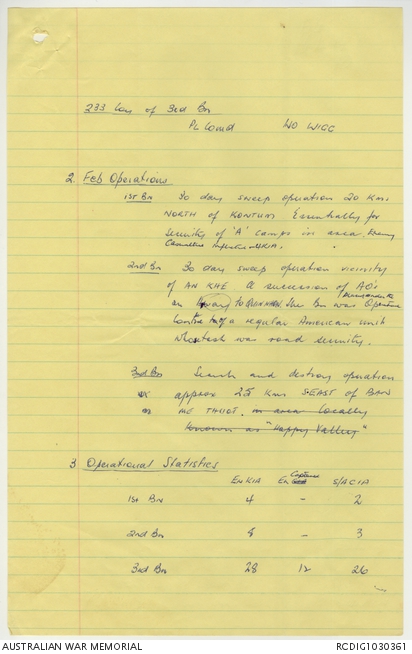 233 Coy of 3rd Bn
PL Comd WO WIGG
2. Feb Operations
1ST Bn 30 day sweep operation 20 Kms
NORTH of KONTUM Essentially for
security of 'A' camps in area Enemy
Casualties
2nd Bn 30 day sweep operation vicinity
of AN KHE A succession of AO's
The Bn was
of a regular American unit
was road security.
3rd Bn Search and destroy operation
approx 25 Kms SEAST of BAN
ME THUOT. in area locally
known as "Happy Valley"
3 Operational Statistics
En KIA En Captured S/ACIA
1st Bn 4 - 2
2nd Bn 8 - 3
3rd Bn 28 12 26
AUSTRALIAN WAR MEMORIAL RCDIG1030361